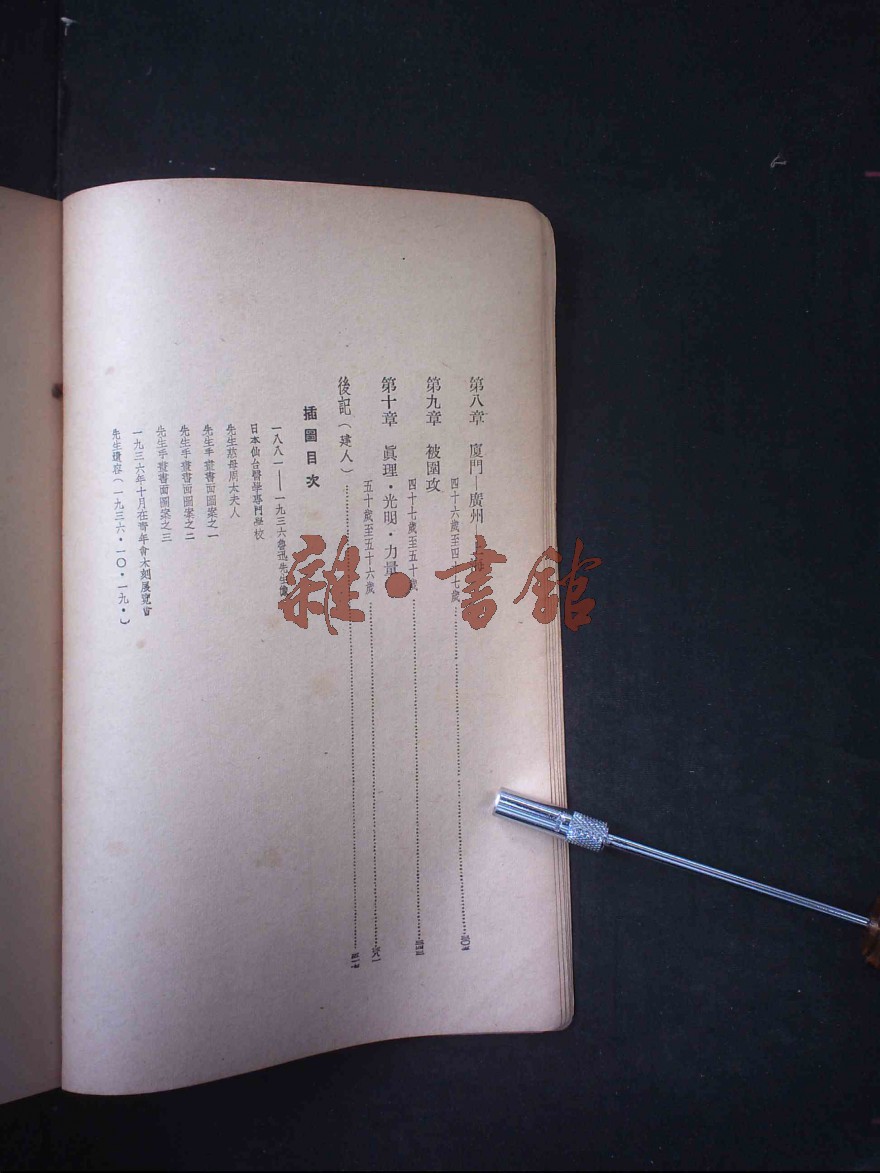 第八章 廈門—廣州—
四十六歲至四十七歲
第九章 被圍攻
四十七歲至五十歲
第十章 眞理·光明·力量
五十歲至五十六歲
後記（建人）
插圖目次
一八八一——一九三六魯迅先生像
日本仙台醫學專門學校
先生慈母周太夫人
先生手畫書面圖案之一
先生手畫書面圖案之二
先生手畫書面圖案之三
一九三六年十月在靑年會木刻展覽會
先生遺容（一九三六·一〇·一九·）
雜·書館